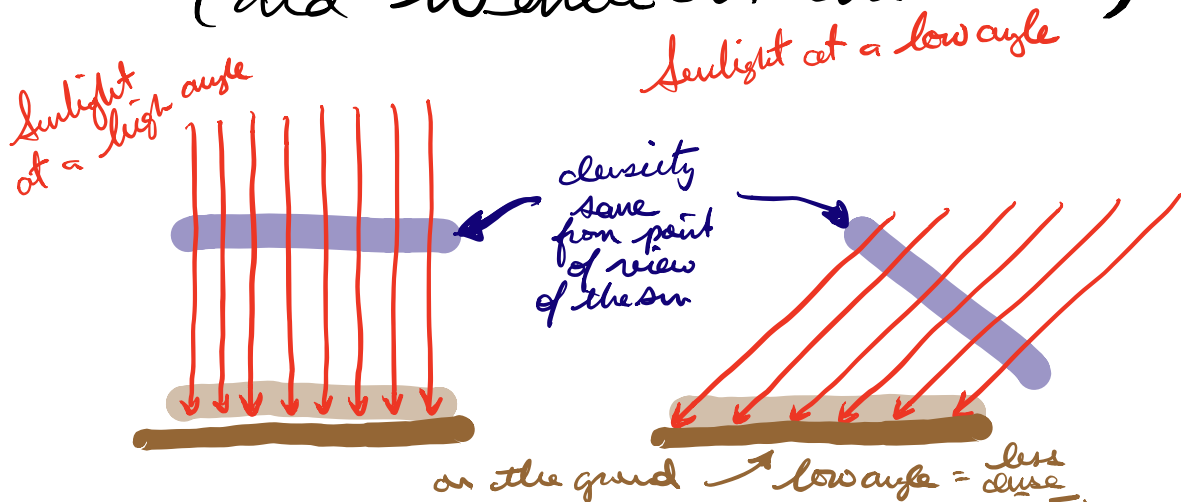 Sunlight
at a high angle
Sunlight at a low angle
density
same
from point
of view
of the sun
on the ground
low angle = less
dense